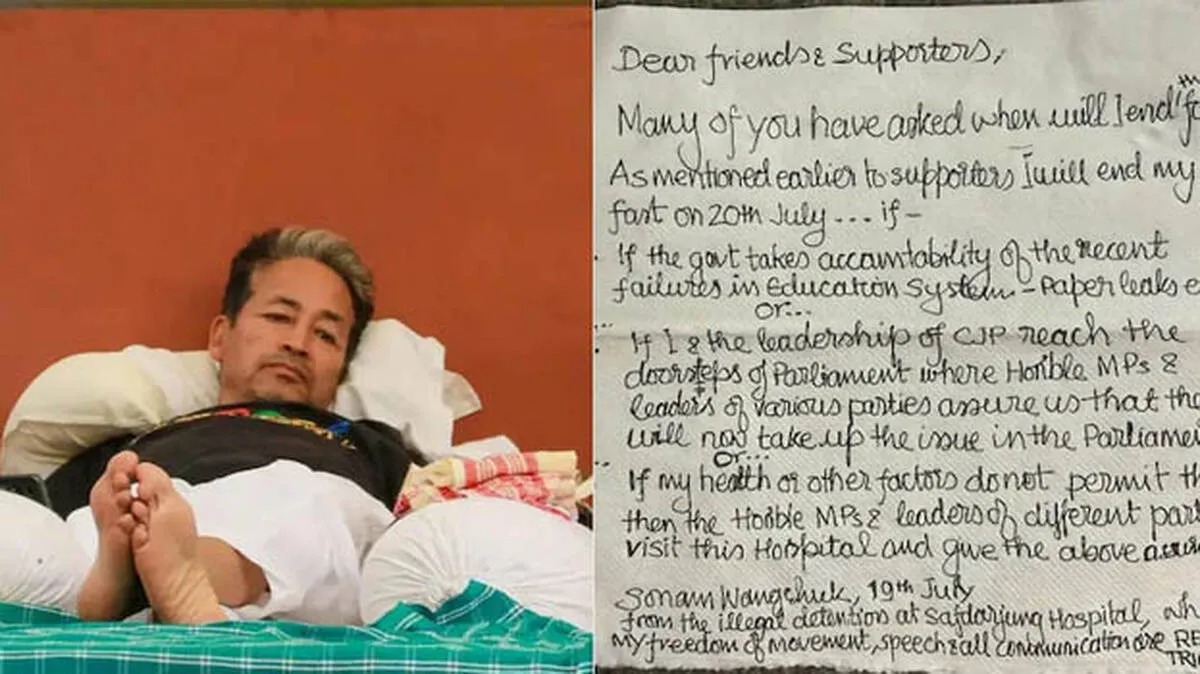 Dear friends & Supporters,
th
Many of you have asked when will I end
As mentioned earlier to supporters I will end my
fast on 20th July .... if -
If the govt takes accountability of the recent
failures in Education System - Paper leaks
or...
If I & the leadership of CJP reach the
doorsteps of Parliament where Hon'ble MPs &
leaders of various parties assure us that
will now take up the issue in the
or...
If my health or other factors do not permit
then the Hon'ble MPs & leaders of different
visit this Hospital and give the above
Sonam Wangchuk, 19th July
from the illegal detention at Safdarjung Hospital,
my freedom of movement, speech & all communication are